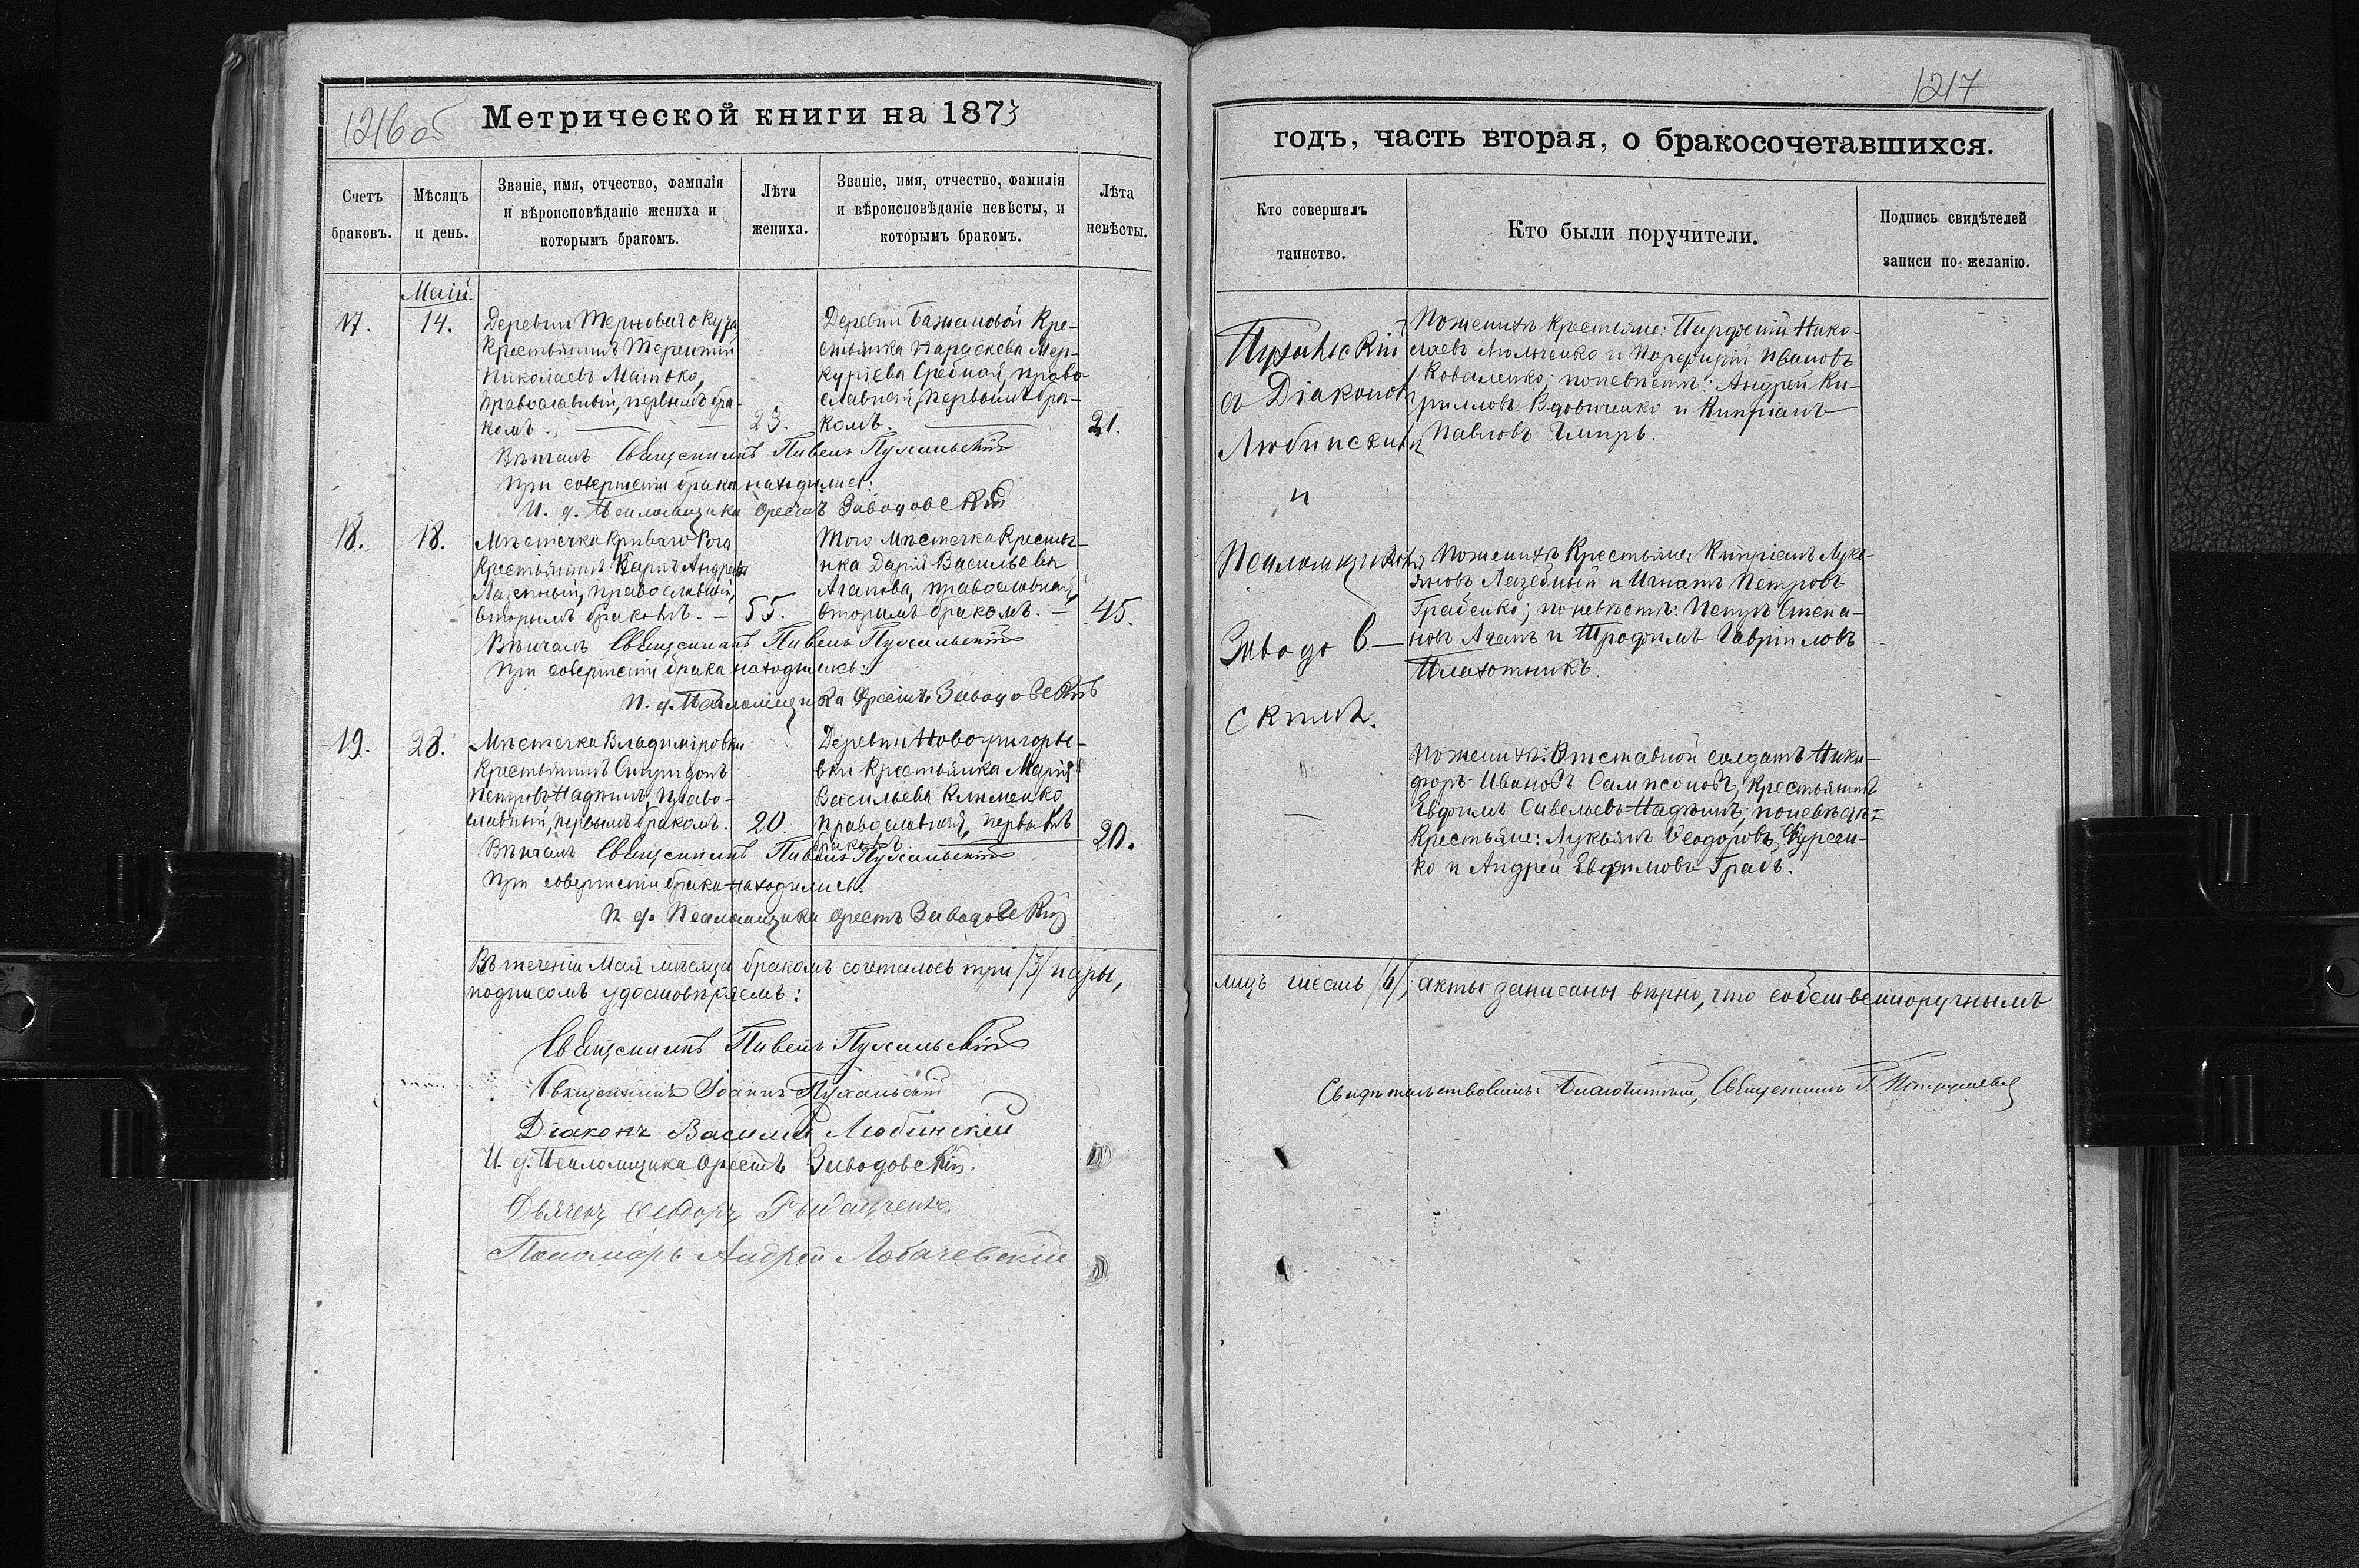 1216 об
Метрической книги на 1873
Счетъ браковъ.
Мѣсяцъ и день.
Званіе, имя, отчество, фамилія и вѣроисповѣданіе жениха и которымъ бракомъ.
Лѣта жениха.
Званіе, имя, отчество, фамилія и вѣроисповѣданіе невѣсты, и которымъ бракомъ.
Лѣта невѣсты.
Май.
17.
14.
Деревни Терноватокута
Крестьянинъ Терентій
Николаевъ
православный, первымъ бра-
комъ.
23.
Деревни Бажановой Кре-
стьянка Параскева Мер-
куріева Средная, право-
славная, первымъ бра-
комъ.
21.
Вѣнчалъ Священникъ Павелъ Пухальскій
При совершеніи брака находились:
И. д. Псаломщика Орестъ Заводовскій
18.
18.
Мѣстечка Криваго Рога
Крестьянинъ Карпъ Андреевъ
православный,
вторымъ бракомъ. —
55.
Того мѣстечка Крестьян-
нка Дарія Васильева
Агапова, православная,
вторымъ бракомъ. —
45.
Вѣнчалъ Священникъ Павелъ Пухальскій
При совершеніи брака находились:
И. д. Псаломщика Орестъ Заводовскій
19.
28.
Мѣстечка Владиміровки
Крестьянинъ Спиридонъ
Петровъ Надтинъ право-
славный, первымъ бракомъ.
20.
Деревни Новогригорье-
вки Крестьянка Марія
Васильева Клименко
православная, первымъ
бракомъ.
20.
Вѣнчалъ Священникъ Павелъ Пухальскій
При совершеніи брака находились:
И. д. Псаломщика Орестъ Заводовскій
Въ теченіи Мая мѣсяца бракомъ сочеталось три /3/ пары,
подписомъ удостовѣряемъ:
Священникъ Павелъ Пухальскій
Священникъ Іоаннъ Пухальскій
Діаконъ Василій Любинскій
И. д. Псаломщика Орестъ Заводовскій.
Дьячекъ Ѳеодоръ
Пономарь Андрей Лобачевскій
1217
годъ, часть вторая, о бракосочетавшихся.
Кто совершалъ таинство.
Кто были поручители.
Подпись свидѣтелей записи по желанію.
Пухальскій
съ Діакономъ
Любинскимъ
и
Псаломщикомъ
Заводов—
скимъ.
По женихѣ Крестьяне: Парфеній Нико-
лаевъ и Порфирій Ивановъ
Коваленко; по невѣстѣ: Андрей Ки-
рилловъ Вдовиченко и Кипріанъ
Павловъ
По женихѣ Крестьяне Кипріанъ Лукь-
яновъ Лазебный и Игнатъ Петровъ
Грабенко; по невѣстѣ: Петръ Степа-
новъ Агапъ и Трофимъ Гавриловъ
Плахотникъ.
По женихѣ: Отставной солдатъ Ники-
форъ Ивановъ Сампсоновъ, Крестьянинъ
Евфимъ Савельевъ Надтинъ; по невѣстѣ:
Крестьяне: Лукьянъ Ѳеодоровъ Фурсен-
ко и Андрей Евфимовъ Грабъ.
лицъ шесть /6/, акты записаны вѣрно, что собственноручнымъ
Свидѣтельствовалъ: Благочинный, Священникъ